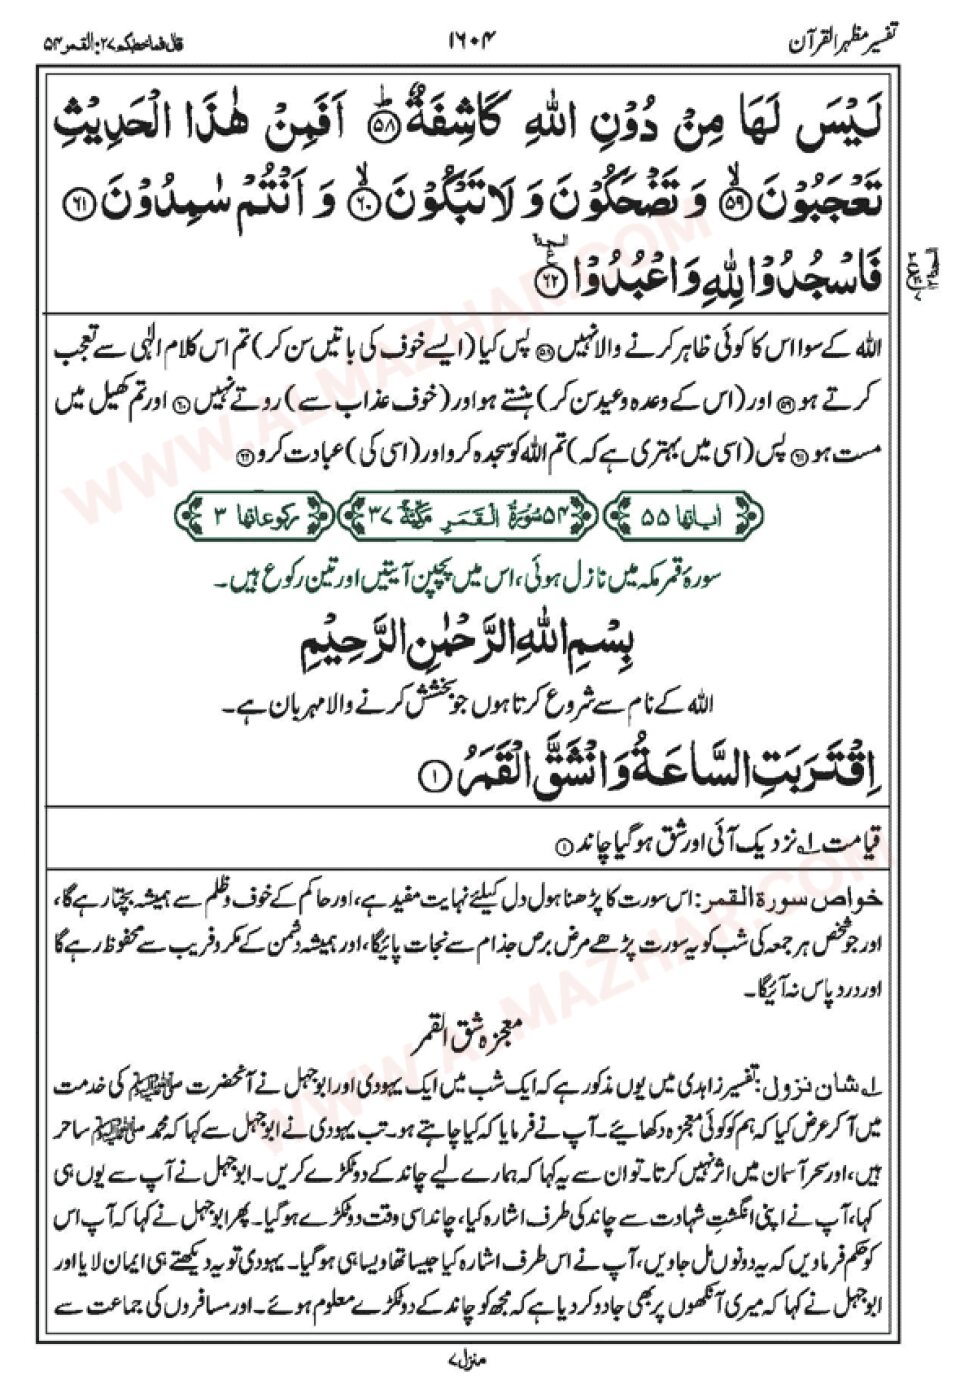 تفسیر مظہر القرآن
۱۶۰۴
قال فما خطبکم ۲۷: القمر ۵۴
لَيْسَ لَهَا مِنْ دُوْنِ اللهِ كَاشِفَةٌ ﴿۵۸﴾ اَفَمِنْ هٰذَا الْحَدِيْثِ
تَعْجَبُوْنَ ﴿۵۹﴾ وَ تَضْحَكُوْنَ وَ لَا تَبْكُوْنَ ﴿۶۰﴾ وَ اَنْتُمْ سٰمِدُوْنَ ﴿۶۱﴾
فَاسْجُدُوْا لِلهِ وَ اعْبُدُوْا ﴿۶۲﴾
السجدۃ
اللہ کے سوا اس کا کوئی ظاہر کرنے والا نہیں ﴿۵۸﴾ پس کیا (ایسے خوف کی باتیں سن کر) تم اس کلام الٰہی سے تعجب
کرتے ہو ﴿۵۹﴾ اور (اس کے وعدہ وعید سن کر) ہنستے ہو اور (خوف عذاب سے) روتے نہیں ﴿۶۰﴾ اور تم کھیل میں
مست ہو ﴿۶۱﴾ پس (اسی میں بہتری ہے کہ) تم اللہ کو سجدہ کرو اور (اسی کی) عبادت کرو ﴿۶۲﴾
اٰیاتها ۵۵
۵۴ سُوْرَةُ الْقَمَرِ مَكِّيَّةٌ ۳۷
رکوعاتها ۳
سورۂ قمر مکہ میں نازل ہوئی، اس میں پچپن آیتیں اور تین رکوع ہیں۔
بِسْمِ اللهِ الرَّحْمٰنِ الرَّحِيْمِ
اللہ کے نام سے شروع کرتا ہوں جو بخشش کرنے والا مہربان ہے۔
اِقْتَرَبَتِ السَّاعَةُ وَ انْشَقَّ الْقَمَرُ ﴿۱﴾
قیامت ۱؎ نزدیک آئی اور شق ہو گیا چاند ﴿۱﴾
خواص سورة القمر: اس سورت کا پڑھنا ہول دل کیلئے نہایت مفید ہے، اور حاکم کے خوف و ظلم سے ہمیشہ بچتا رہے گا،
اور جو شخص ہر جمعہ کی شب کو یہ سورت پڑھے مرض برص جذام سے نجات پائیگا، اور ہمیشہ دشمن کے مکر و فریب سے محفوظ رہے گا
اور درد پاس نہ آئیگا۔
معجزہ شق القمر
۱؎ شان نزول: تفسیر زاہدی میں یوں مذکور ہے کہ ایک شب میں ایک یہودی اور ابو جہل نے آنحضرت ﷺ کی خدمت
میں آ کر عرض کیا کہ ہم کو کوئی معجزہ دکھائیے۔ آپ نے فرمایا کہ کیا چاہتے ہو۔ تب یہودی نے ابو جہل سے کہا کہ محمد ﷺ ساحر
ہیں، اور سحر آسمان میں اثر نہیں کرتا۔ تو ان سے یہ کہا کہ ہمارے لیے چاند کے دو ٹکڑے کریں۔ ابو جہل نے آپ سے یوں ہی
کہا، آپ نے اپنی انگشتِ شہادت سے چاند کی طرف اشارہ کیا، چاند اسی وقت دو ٹکڑے ہو گیا۔ پھر ابو جہل نے کہا کہ آپ اس
کو حکم فرماویں کہ یہ دونوں مل جاویں، آپ نے اس طرف اشارہ کیا جیسا تھا ویسا ہی ہو گیا۔ یہودی تو یہ دیکھتے ہی ایمان لایا اور
ابو جہل نے کہا کہ میری آنکھوں پر بھی جادو کر دیا ہے کہ مجھ کو چاند کے دو ٹکڑے معلوم ہوئے۔ اور مسافروں کی جماعت سے
منزل ۷
WWW.ALMAZHAR.COM
WWW.ALMAZHAR.COM